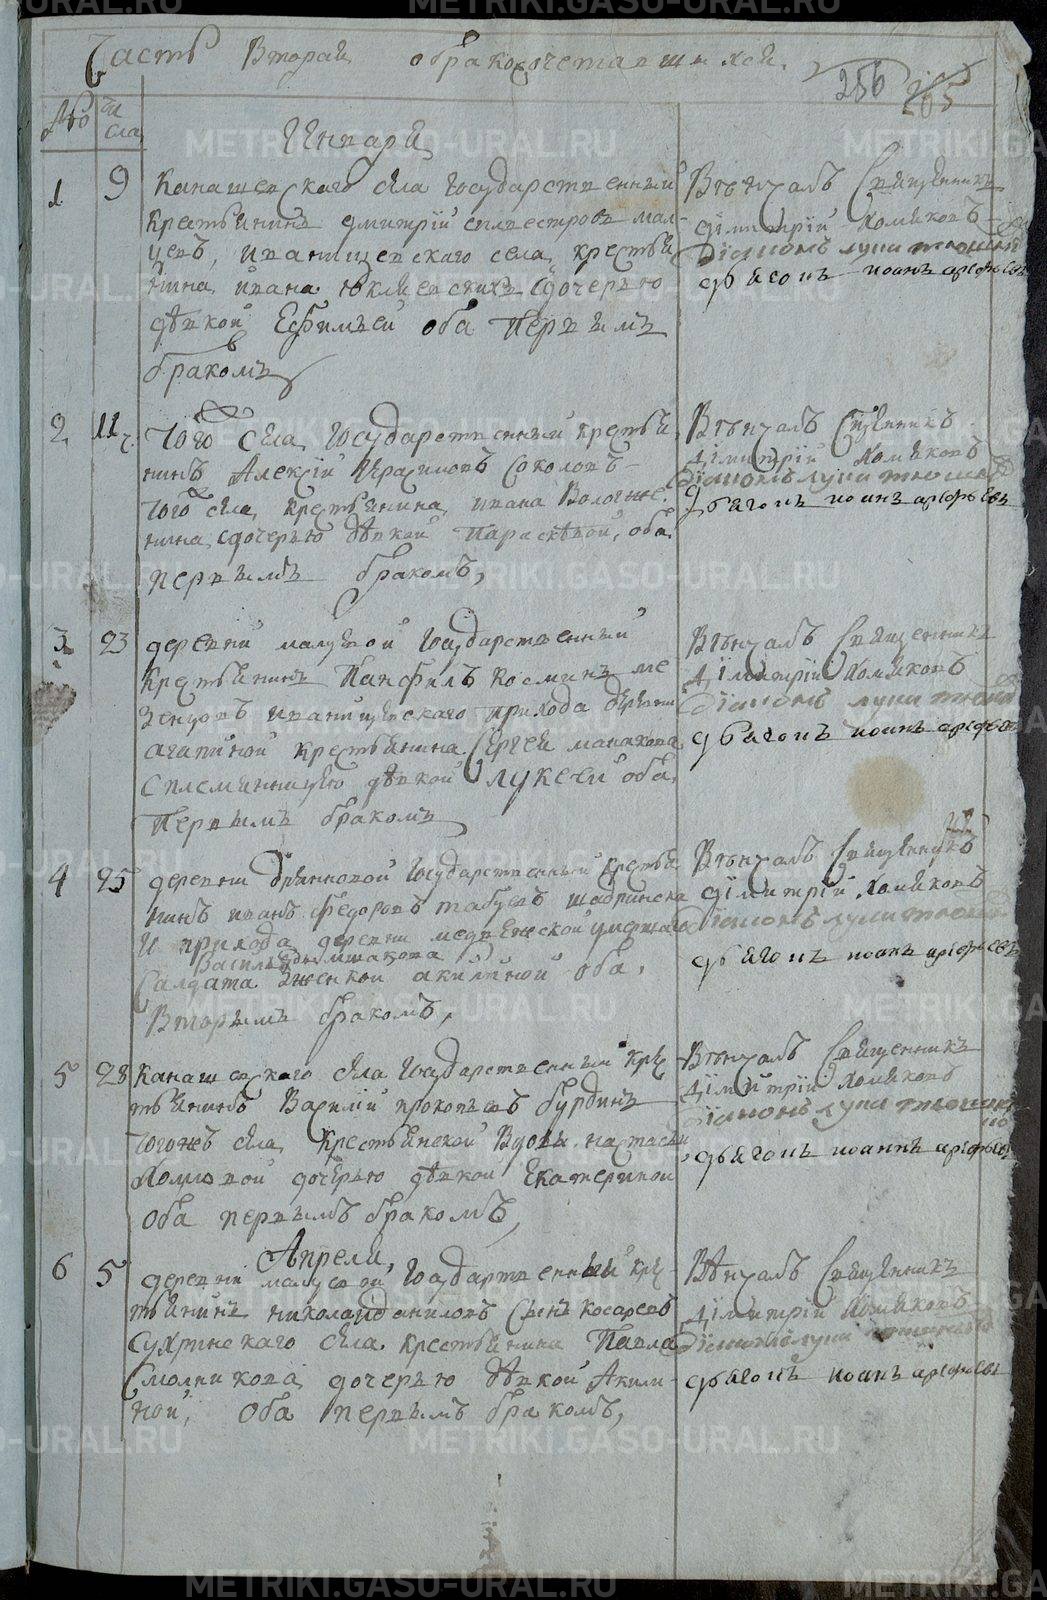 Часть Вторая о бракосочетавшихся.
256 265
№о Чи
сла
Генваря
1 9 Канашевскаго села Государственный
крестьянинъ дмитрій силвестровъ мал-
цевъ, иванищевскаго села крестья
нина ивана Юклаевскихъ здочерью
девкой Ефимьей оба первымъ
бракомъ
Венчалъ Священникъ
димитрій Хомяковъ
діаконъ лупи
дьячокъ иоанъ арефьевъ
2 11 Того села Государственный крестья
нинъ Алексій Соколовъ
того села крестьянина ивана Вологже
нина сдочерью девкой Параскевой, оба
первымъ бракомъ,
Венчалъ Священникъ
димитрій Хомяковъ
діаконъ лупи
дьячокъ иоанъ арефьевъ
3 23 деревни малушной Государственный
крестьянинъ Панфилъ Косминъ ме
зенцовъ иванищевскаго прихода деревни
агапиной крестьянина Сергея манакова
сплемянницею девкой лукеей оба
первымъ бракомъ
Венчалъ Священникъ
димитрій Хомяковъ
діаконъ лупи
дьячокъ иоанъ арефьевъ
4 25 деревни Государственный крестья
нинъ иванъ Федоровъ табуевъ шадринска
го прихода деревни медвежской умершаго
Василья
Салдата женкой акилиной оба
вторымъ бракомъ,
Венчалъ Священникъ
димитрій Хомяковъ
діаконъ лупи
дьячокъ иоанъ арефьевъ
5 28 Канашевскаго села Государственный кре
стьянинъ Василий прокопьевъ бурдинъ
тогожъ села крестьянской вдовы настасьи
дочерью девкой Екатериной
оба первымъ бракомъ,
Венчалъ Священникъ
димитрій Хомяковъ
діаконъ лупи
дьячокъ иоаннъ арефьевъ
Апреля,
6 5 деревни малушной Государственный кре-
стьянинъ николай даниловъ сынъ косаревъ
Сухринскаго села крестьянина Павла
Смолникова дочерью девкой Акили-
ной, оба первымъ бракомъ,
Венчалъ Священникъ
димитрій Хомяковъ
діаконъ лупи
дьячокъ иоанъ арефьевъ
METRIKI.GASO-URAL.RU